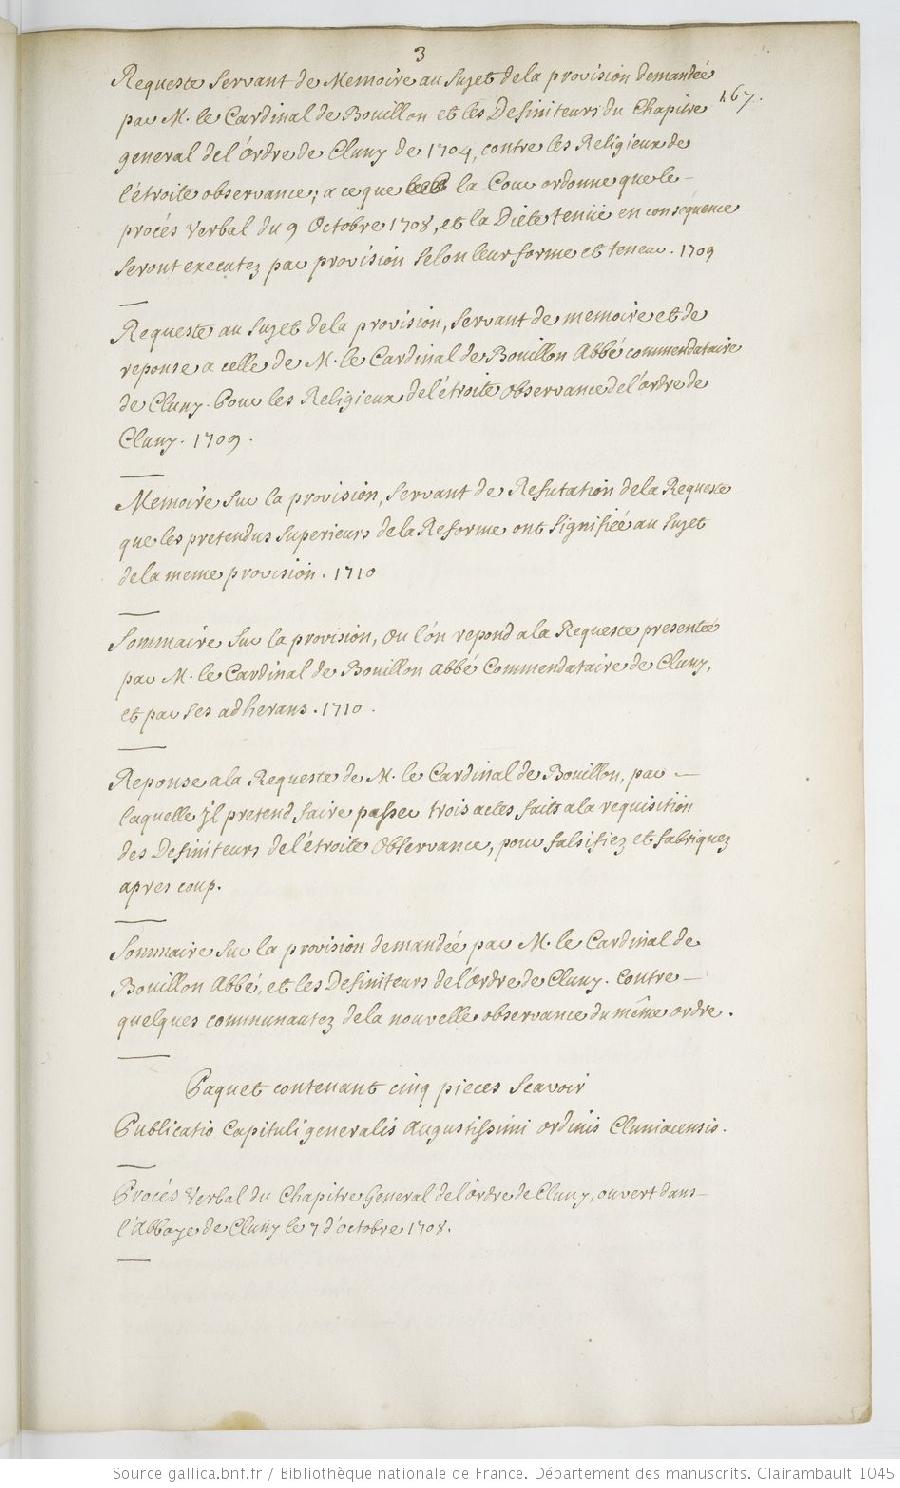 3
Requeste servant de Memoire au sujet de la provision demandée
par M. le Cardinal de Bouillon et les Definiteurs du Chapitre
167.
general de l'Ordre de Cluny de 1704, contre les Religieux de
l'étroite observance; a ce que la Cour ordonne que le
procés verbal du 9 Octobre 1708, et la Diéte tenüe en consequence
seront executez par provision selon leur forme et teneur. 1709
Requeste au sujet de la provision, servant de memoire et de
reponse a celle de M. le Cardinal de Bouillon Abbé commendataire
de Cluny. Pour les Religieux de l'étroite Observance de l'ordre de
Cluny. 1709.
Memoire sur la provision, servant de Refutation de la Requeste
que les pretendus superieurs de la Reforme ont signifiée au sujet
de la meme provision. 1710
Sommaire sur la provision, ou l'on repond a la Requeste presentée
par M. le Cardinal de Bouillon abbé Commendataire de Cluny,
et par ses adherans. 1710.
Reponse a la Requeste de M. le Cardinal de Bouillon, par
laquelle Jl pretend faire passer trois actes faits a la requisition
des Definiteurs de l'étroite Observance, pour falsifiez et fabriquez
apres coup.
Sommaire sur la provision demandée par M. le Cardinal de
Bouillon Abbé, et les Definiteurs de l'Ordre de Cluny. Contre
quelques communautez de la nouvelle observance du même ordre.
Paquet contenant cinq pieces scavoir
Publicatio Capituli generalis Augustissimi ordinis Cluniacensis.
Procés verbal du Chapitre General de l'ordre de Cluny, ouvert dans
l'Abbaye de Cluny le 7 d'octobre 1708.
Source gallica.bnf.fr / Bibliothèque nationale de France. Département des manuscrits. Clairambault 1045